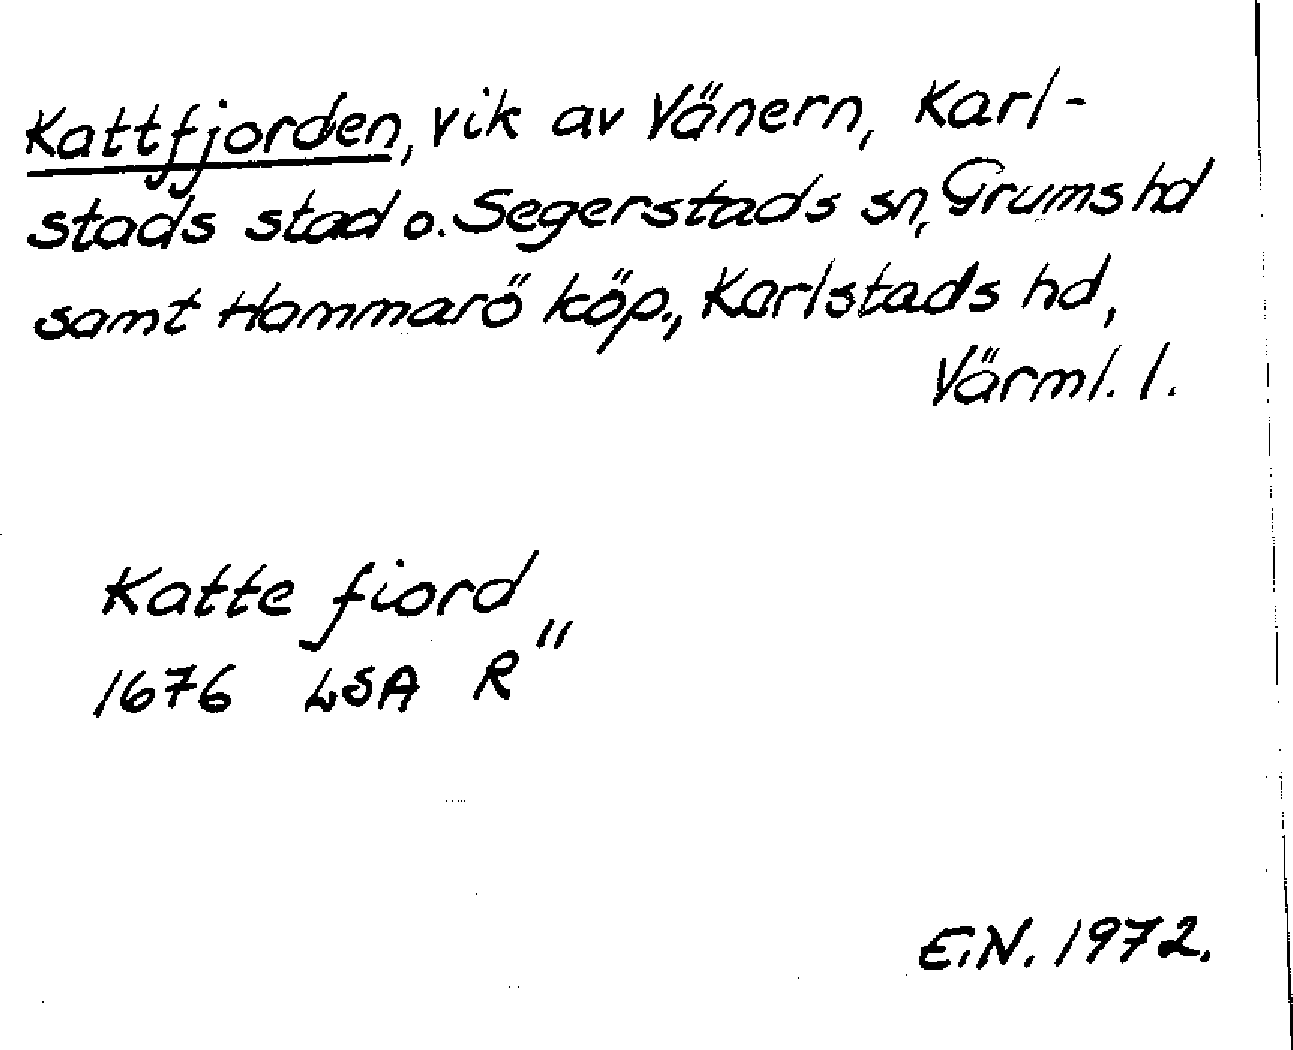 Kattfjorden, vik av Vänern, Karl-
stads stad o. Segerstads sn, Grums hd
samt Hammarö köp., Karlstads hd,
Värml. l.
Katte fiord
1676 LSA R"
E.N. 1972.